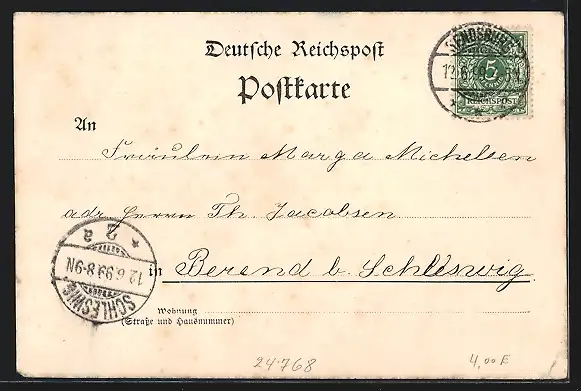 Deutsche Reichspost
Postkarte
5
REICHSPOST
An
Fräulein Marga Michelsen
adr. Herrn Th. Jacobsen
in Berend b. Schleswig.
2 a
12.6.99.8-9N
SCHLESWIG
Wohnung
(Straße und Hausnummer)
24768
4,00 E